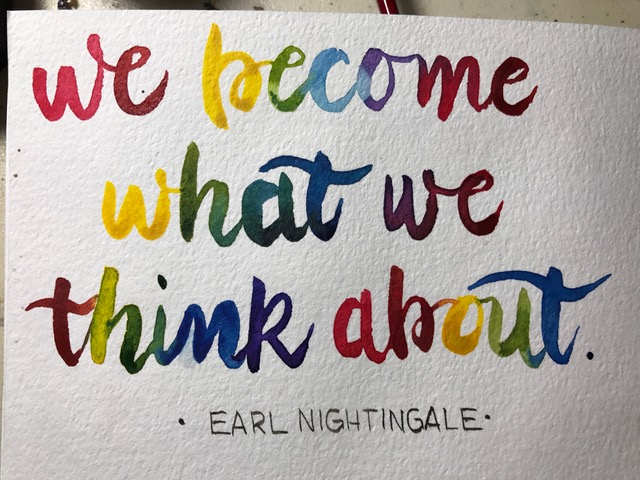 we become
what we
think about.
• EARL NIGHTINGALE •